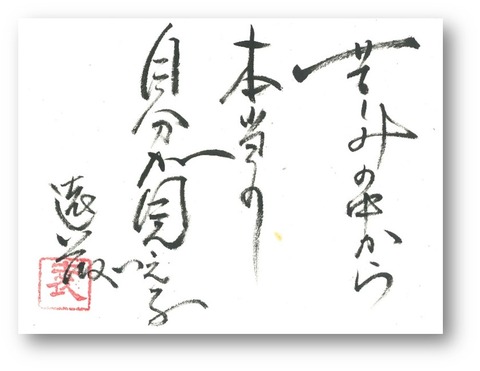 苦しみの中から
本当の
自分が見える